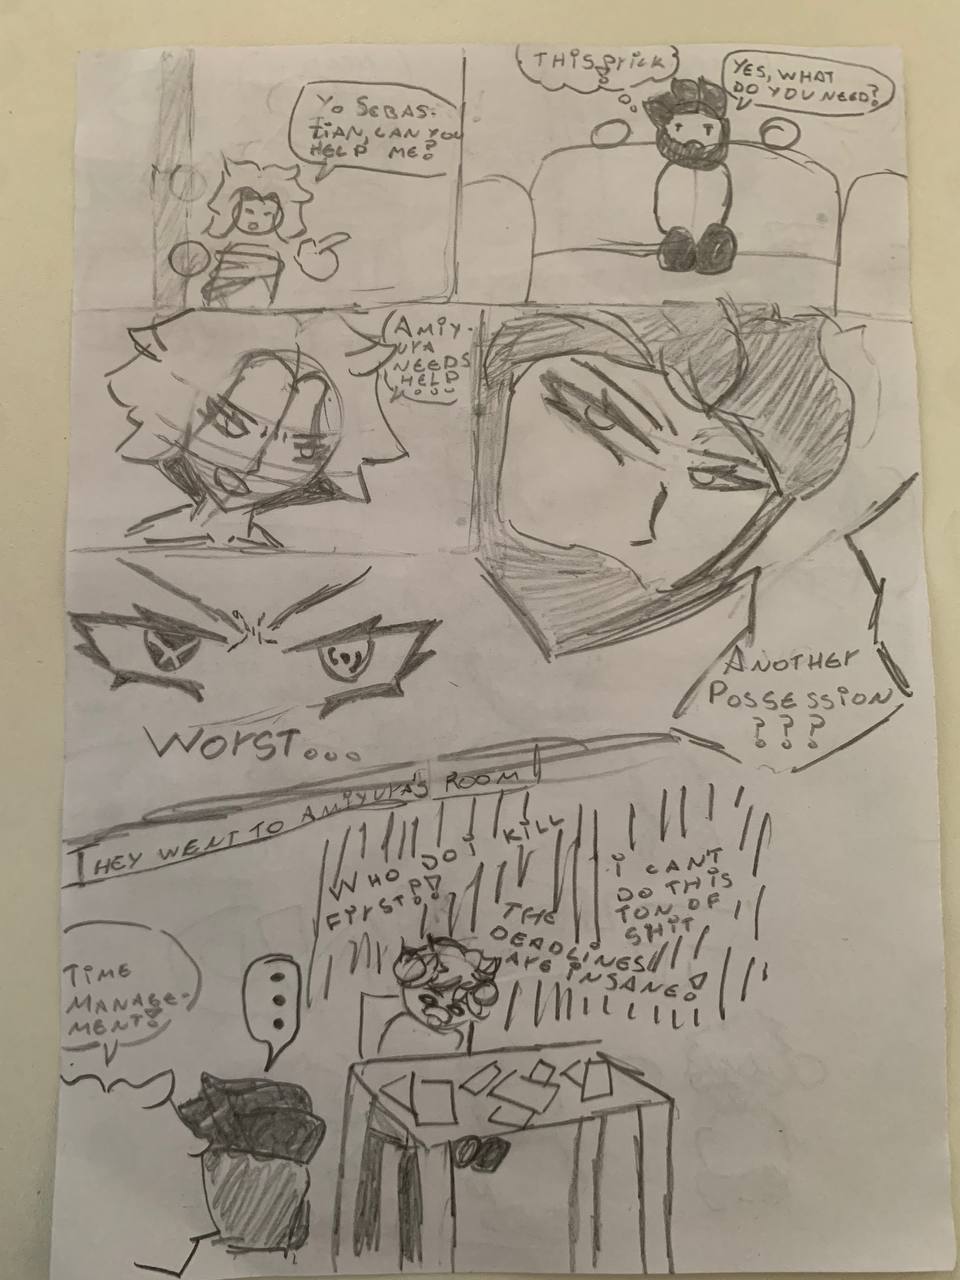 Yo SEBAS-
TIAN, CAN YOU
HELP ME?
THIS PRICK
YES, WHAT
DO YOU NEED?
AMIY-
URA
NEEDS
HELP
...
ANOTHER
POSSESSION
???
WORST...
THEY WENT TO AMIYURA'S ROOM!
WHO DO I KILL
FIRST?!
THE
DEADLINES
ARE INSANE!
I CAN'T
DO THIS
TON OF
SHIT
TIME
MANAGE-
MENT?
...